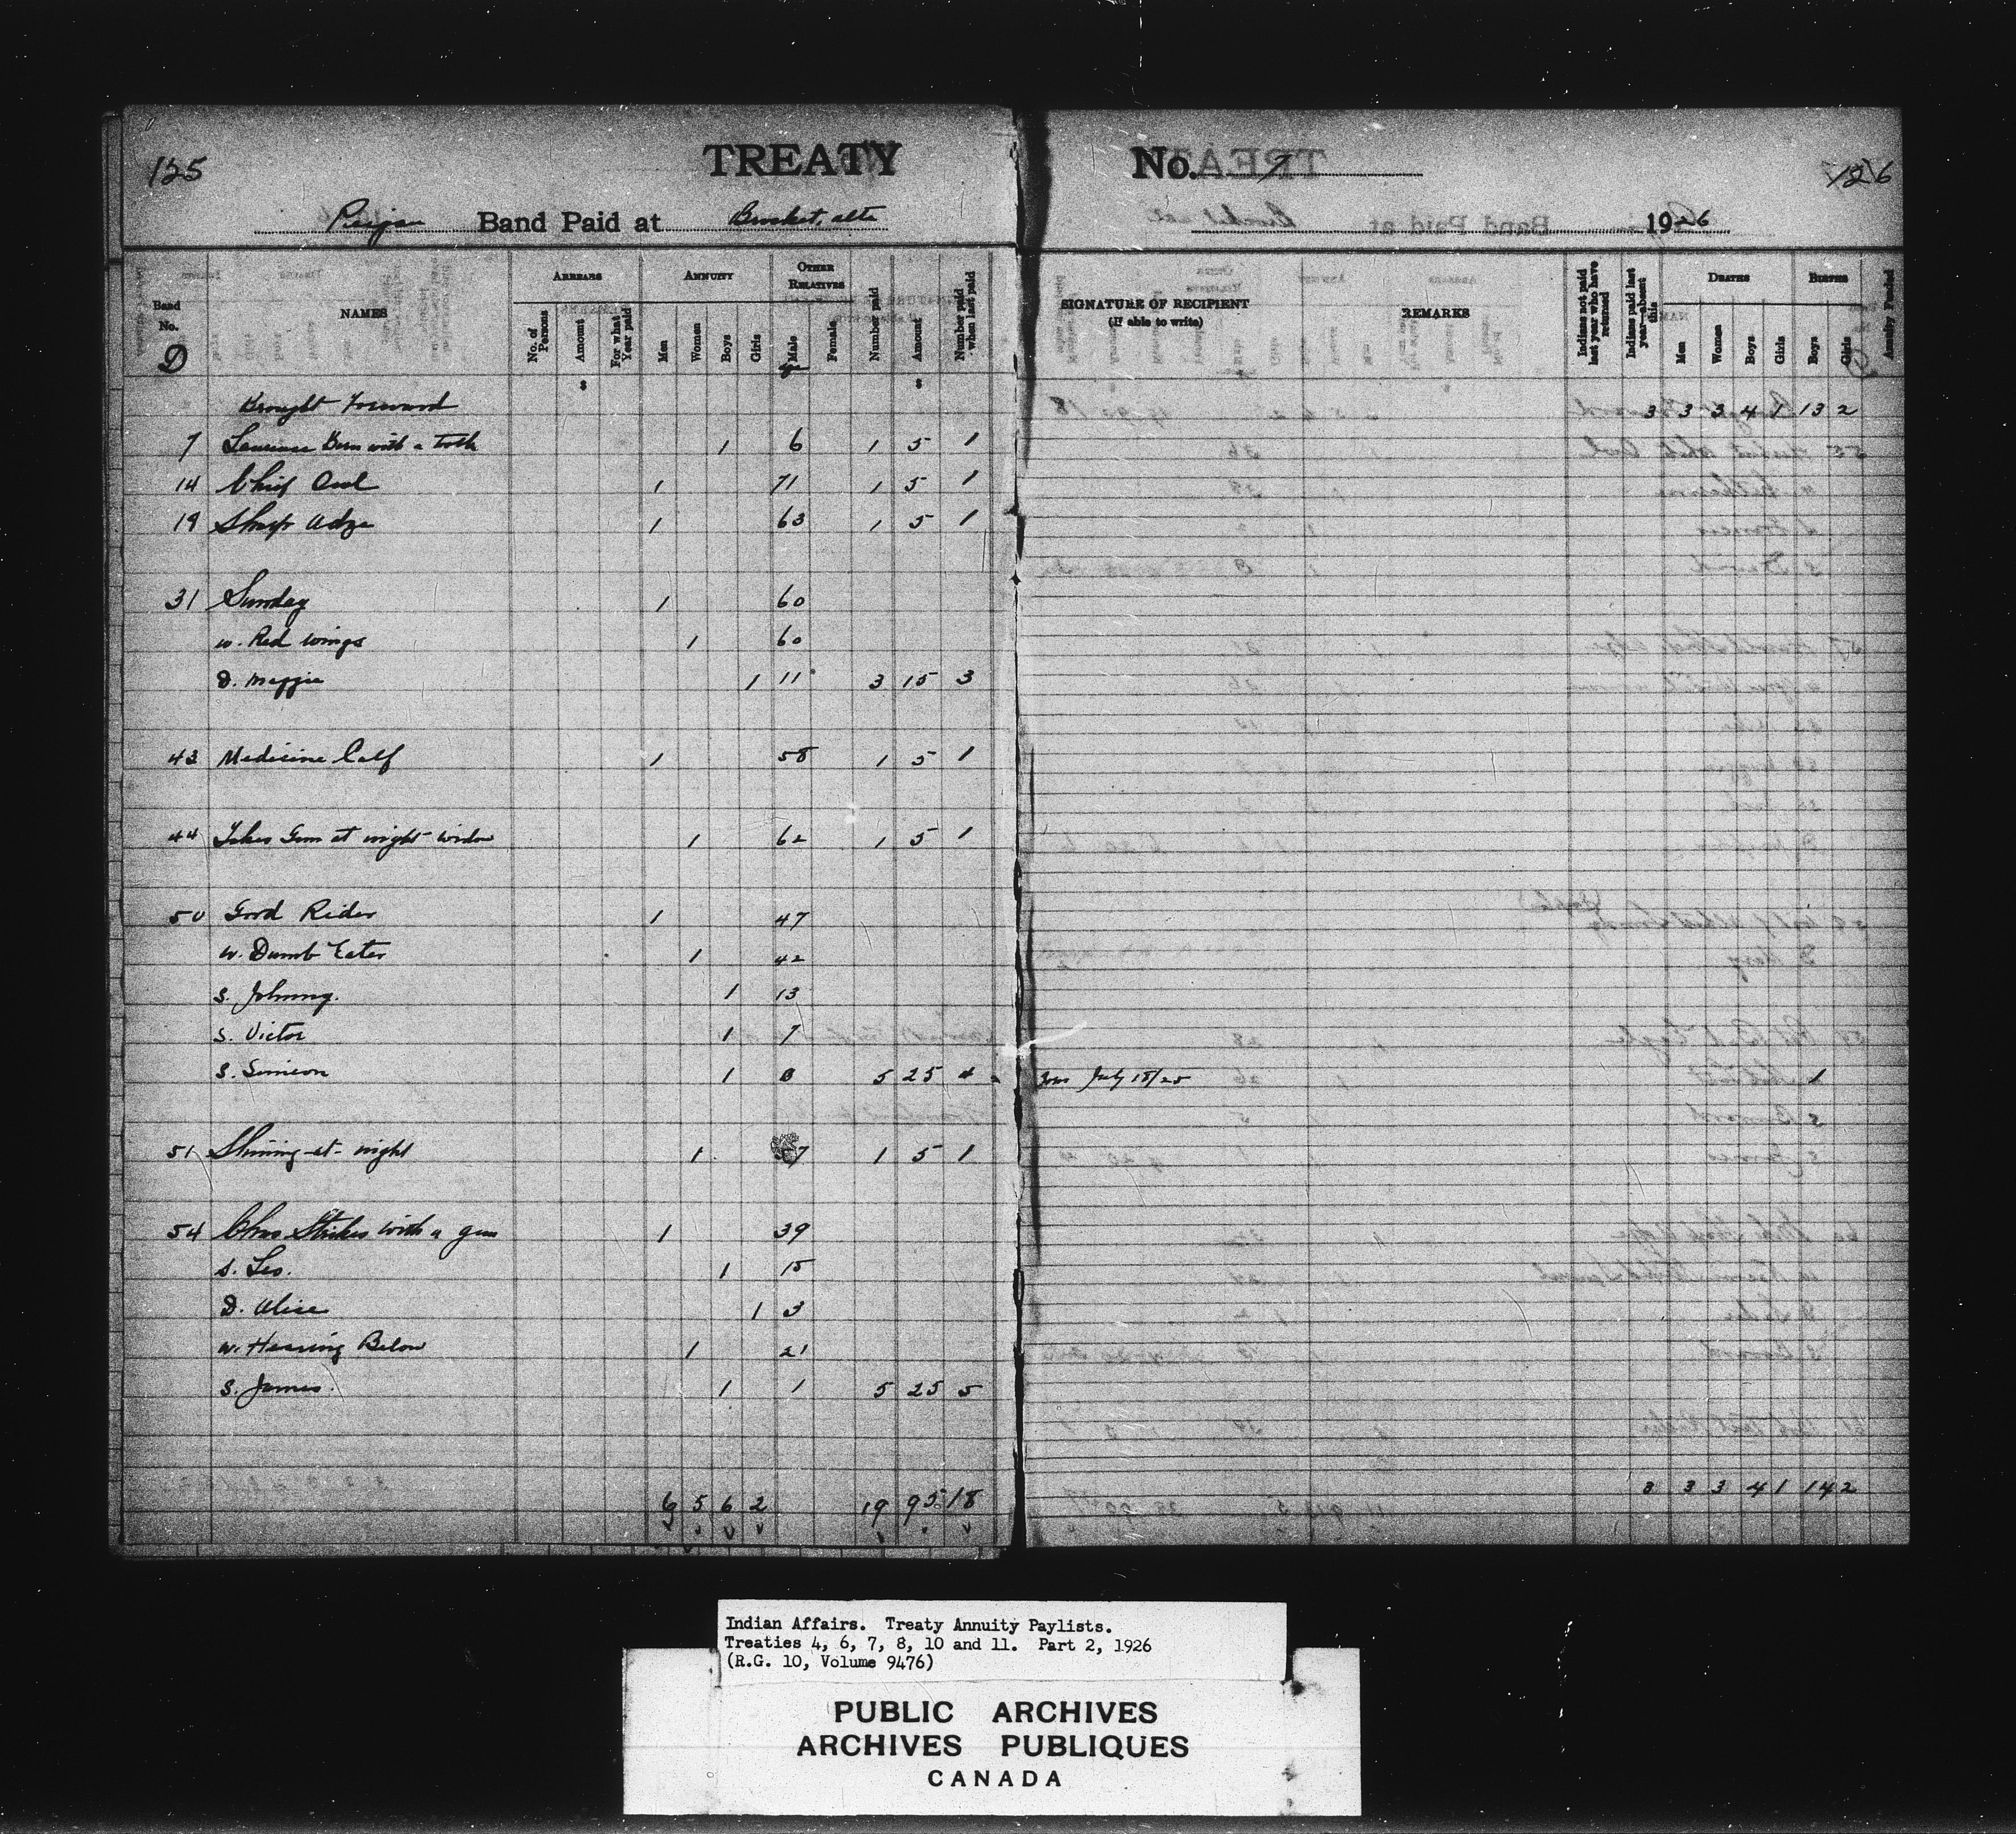 125
TREATY No. 7
126
Peigan Band Paid at Brocket, alta 1926
Band No. NAMES ARREARS ANNUITY OTHER RELATIVES
No. of Persons Amount For what Year paid Men Women Boys Girls Male Female Number paid Amount Number paid when last paid
SIGNATURE OF RECIPIENT (If able to write) REMARKS Indians not paid last year who have returned Indians paid last year—absent this DEATHS Men Women Boys Girls BIRTHS Boys Girls Annuity Funded
D age
$ $
Brought Forward 3 3 3 4 1 13 2
7 Laurence Gun with a tooth 1 6 1 5 1
14 Chief Owl 1 71 1 5 1
19 Sharp Adze 1 63 1 5 1
31 Sunday 1 60
w. Red Wings 1 60
D. Maggie 1 11 3 15 3
43 Medicine Calf 1 58 1 5 1
44 Takes Gun at night widow 1 62 1 5 1
50 Good Rider 1 47
w. Dumb Eater 1 42
s. Johnny. 1 13
s. Victor 1 7
s. Simeon 1 0 5 25 4 July 15/25 1
51 Shining-at-night 1 57 1 5 1
54 Chas Strikes with a gun 1 39
s. Leo. 1 15
D. Alice 1 3
w. Hearing Below 1 21
s. James. 1 1 5 25 5
6 5 6 2 19 95 18 3 3 3 4 1 14 2
Indian Affairs. Treaty Annuity Paylists.
Treaties 4, 6, 7, 8, 10 and 11. Part 2, 1926
(R.G. 10, Volume 9476)
PUBLIC ARCHIVES
ARCHIVES PUBLIQUES
CANADA